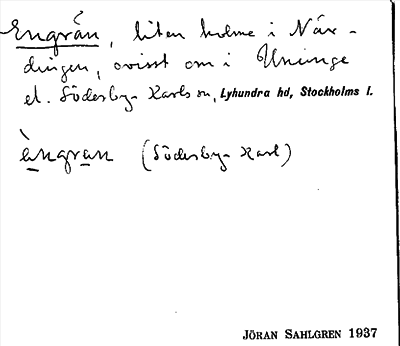 Engrån, liten holme i När-
dingen, ovisst om i Uninge
el. Söderby-Karls sn, Lyhundra hd, Stockholms l.
èngran (Söderby-Karl)
JÖRAN SAHLGREN 1937